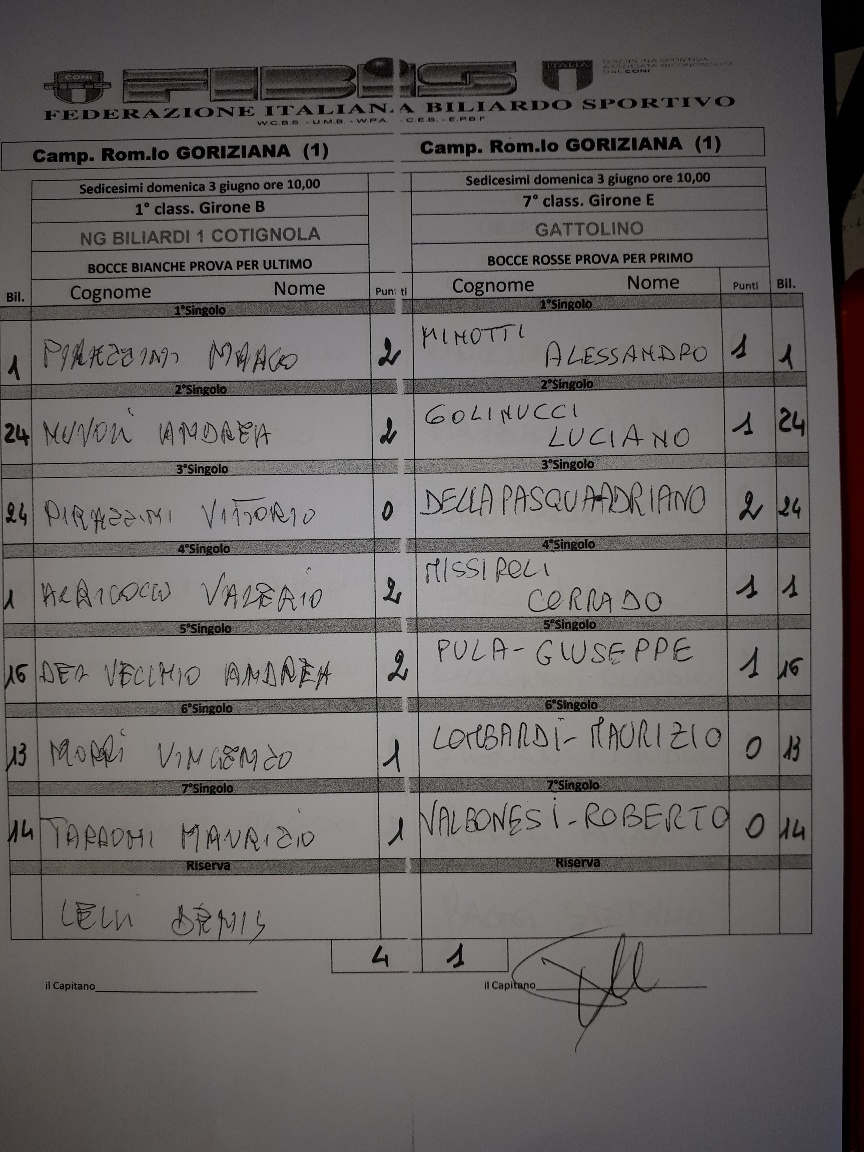 CONI
FIBiS
ITALIA
FEDERAZIONE ITALIANA BILIARDO SPORTIVO
W.C.B.S - U.M.B. - W.P.A. - C.E.B. - E.P.B.F
Camp. Rom.lo GORIZIANA (1) Camp. Rom.lo GORIZIANA (1)
Sedicesimi domenica 3 giugno ore 10,00 Sedicesimi domenica 3 giugno ore 10,00
1° class. Girone B 7° class. Girone E
NG BILIARDI 1 COTIGNOLA GATTOLINO
BOCCE BIANCHE PROVA PER ULTIMO BOCCE ROSSE PROVA PER PRIMO
Bil. Cognome Nome Punti Cognome Nome Punti Bil.
1°Singolo 1°Singolo
1 PIRAZZINI MARCO 2 MINOTTI ALESSANDRO 1 1
2°Singolo 2°Singolo
24 ANDREA 2 GOLINUCCI LUCIANO 1 24
3°Singolo 3°Singolo
24 PIRAZZINI VITTORIO 0 DELLAPASQUA ADRIANO 2 24
4°Singolo 4°Singolo
1 VALERIO 2 MISSIROLI CORRADO 1 1
5°Singolo 5°Singolo
16 DEL VECCHIO ANDREA 2 PULA-GIUSEPPE 1 16
6°Singolo 6°Singolo
13 MORRI VINCENZO 1 LOMBARDI-MAURIZIO 0 13
7°Singolo 7°Singolo
14 MAURIZIO 1 VALBONESI-ROBERTO 0 14
Riserva Riserva
LELLI DENIS
4 1
il Capitano il Capitano